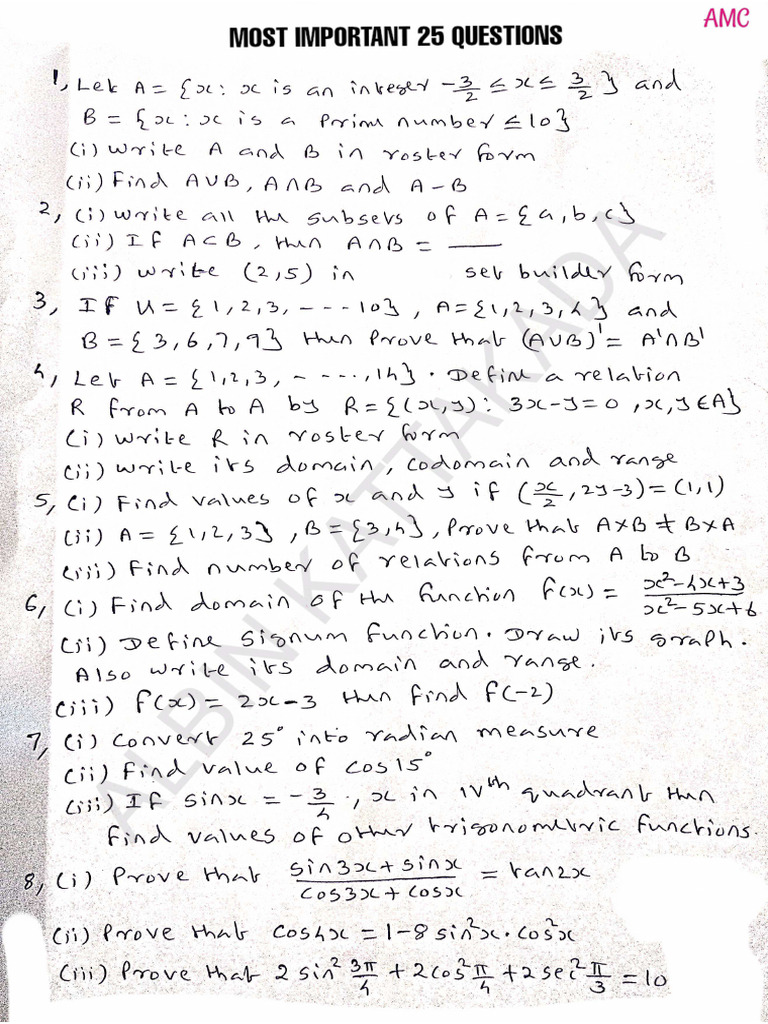 AMC
MOST IMPORTANT 25 QUESTIONS
1, Let A = {x : x is an integer -3/2 ≤ x ≤ 3/2} and
B = {x : x is a Prim number ≤ 10}
(i) Write A and B in roster form
(ii) Find A∪B, A∩B and A-B
2, (i) Write all the subsets of A = {a, b, c}
(ii) If A⊂B, then A∩B = ___
(iii) Write (2,5) in set builder form
3, If U = {1, 2, 3, ---- 10}, A = {1, 2, 3, 4} and
B = {3, 6, 7, 9} then Prove that (A∪B)' = A'∩B'
4, Let A = {1, 2, 3, - - - -, 14}. Define a relation
R from A to A by R = {(x,y) : 3x-y=0, x,y ∈ A}
(i) write R in roster form
(ii) write its domain, codomain and range
5, (i) Find values of x and y if (x/2, 2y-3) = (1,1)
(ii) A = {1, 2, 3}, B = {3, 4}, Prove that A×B ≠ B×A
(iii) Find number of relations from A to B
6, (i) Find domain of the function f(x) = x²-4x+3 / x²-5x+6
(ii) Define Signum function. Draw its graph.
Also write its domain and range.
(iii) f(x) = 2x-3 then find f(-2)
7, (i) Convert 25° into radian measure
(ii) Find value of cos15°
(iii) If sinx = -3/4, x in IVth quadrant then
find values of other trigonometric functions.
8, (i) Prove that sin3x + sinx / cos3x + cosx = tan2x
(ii) Prove that cos4x = 1-8 sin²x.cos²x
(iii) Prove that 2 sin² 3π/4 + 2cos² π/4 + 2 sec² π/3 = 10
ALBIN KATTAKADA